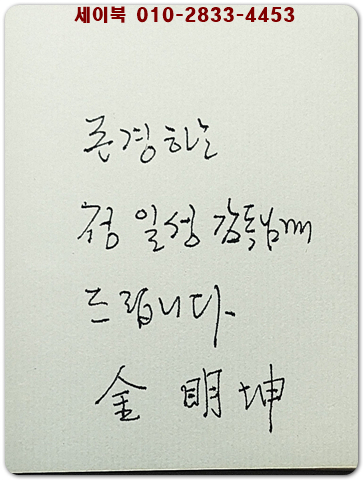 세이북 010-2833-4453
존경하는
정일성 감독님께
드립니다.
金 明 坤